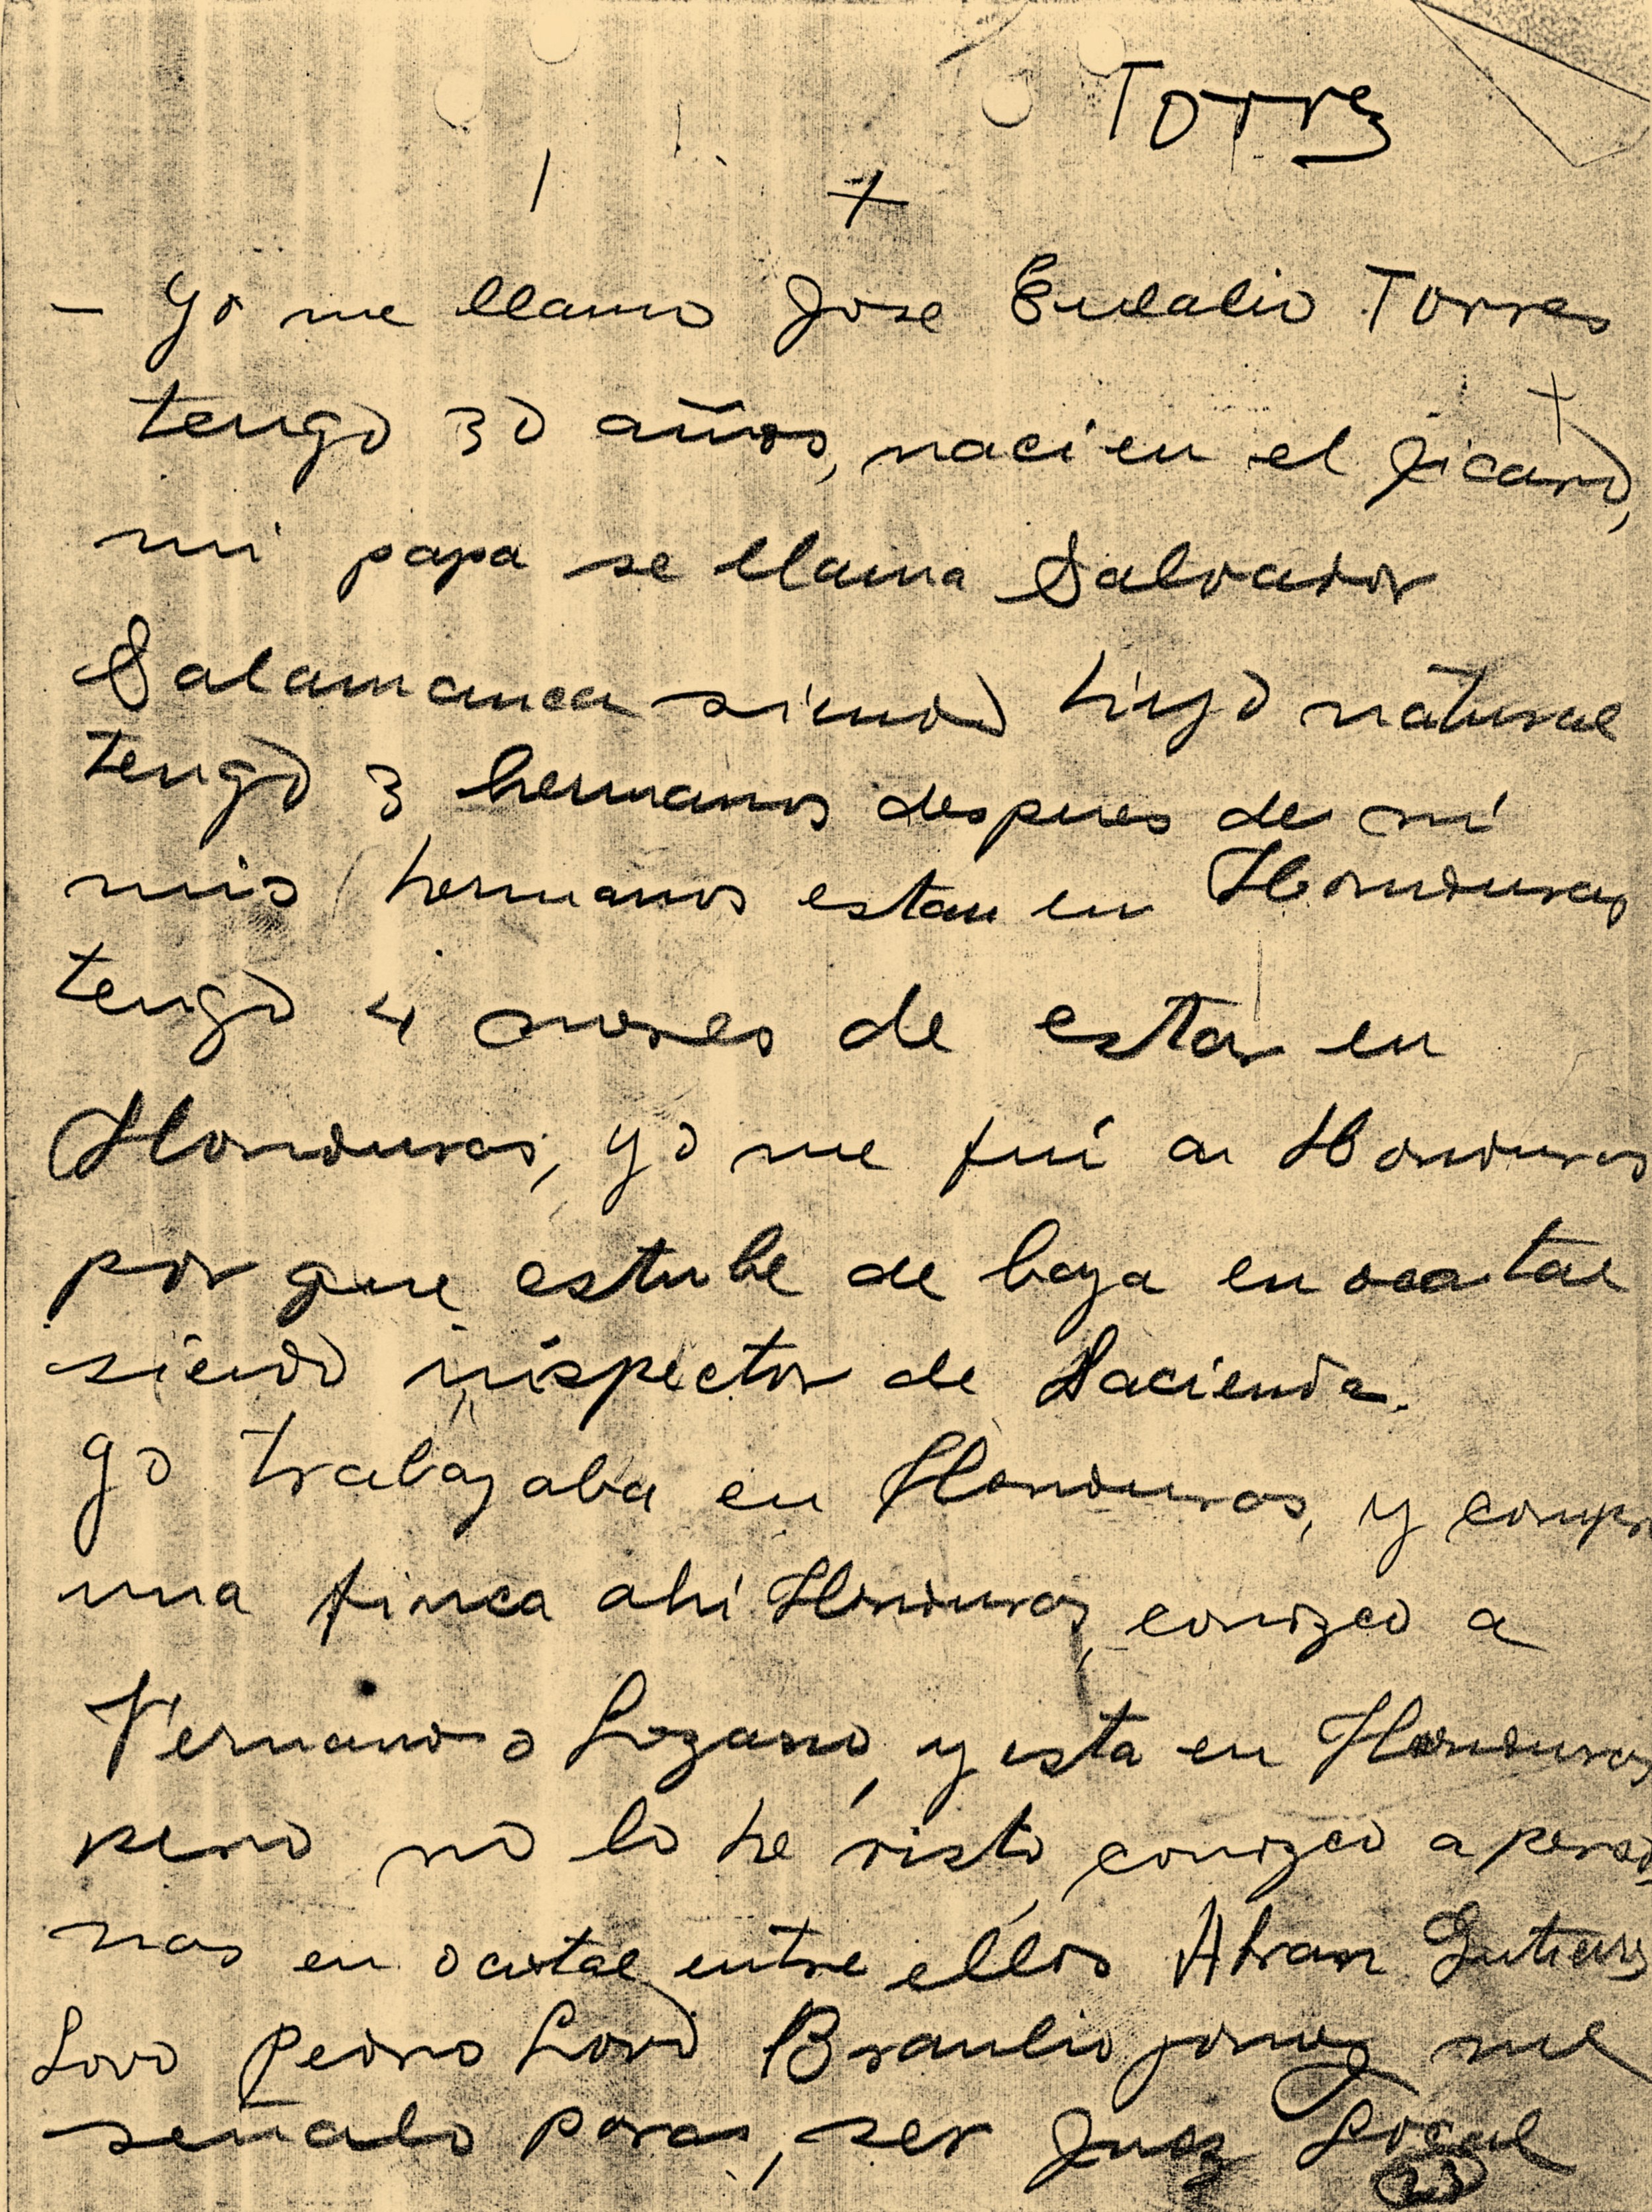 Torres
- Yo me llamo Jose Eulalio Torres
tengo 30 años, naci en el Jicaro,
mi papa se llama Salvador
Salamanca siendo hijo natural
tengo 3 hermanos despues de mi
mis hermanos estan en Honduras
tengo 4 meses de estar en
Honduras, yo me fui a Honduras
por que estube de baja en ocotal
siendo inspector de Hacienda.
yo trabajaba en Honduras, y compr
una finca ahi Honduras, conozco a
Fernando Lozano, y esta en Honduras
pero no lo he visto, conozco a perso
nas en ocotal entre ellos Abran Gutierres
Lovo Pedro Lovo Braulio me
señalo para, ser Juez Local
23